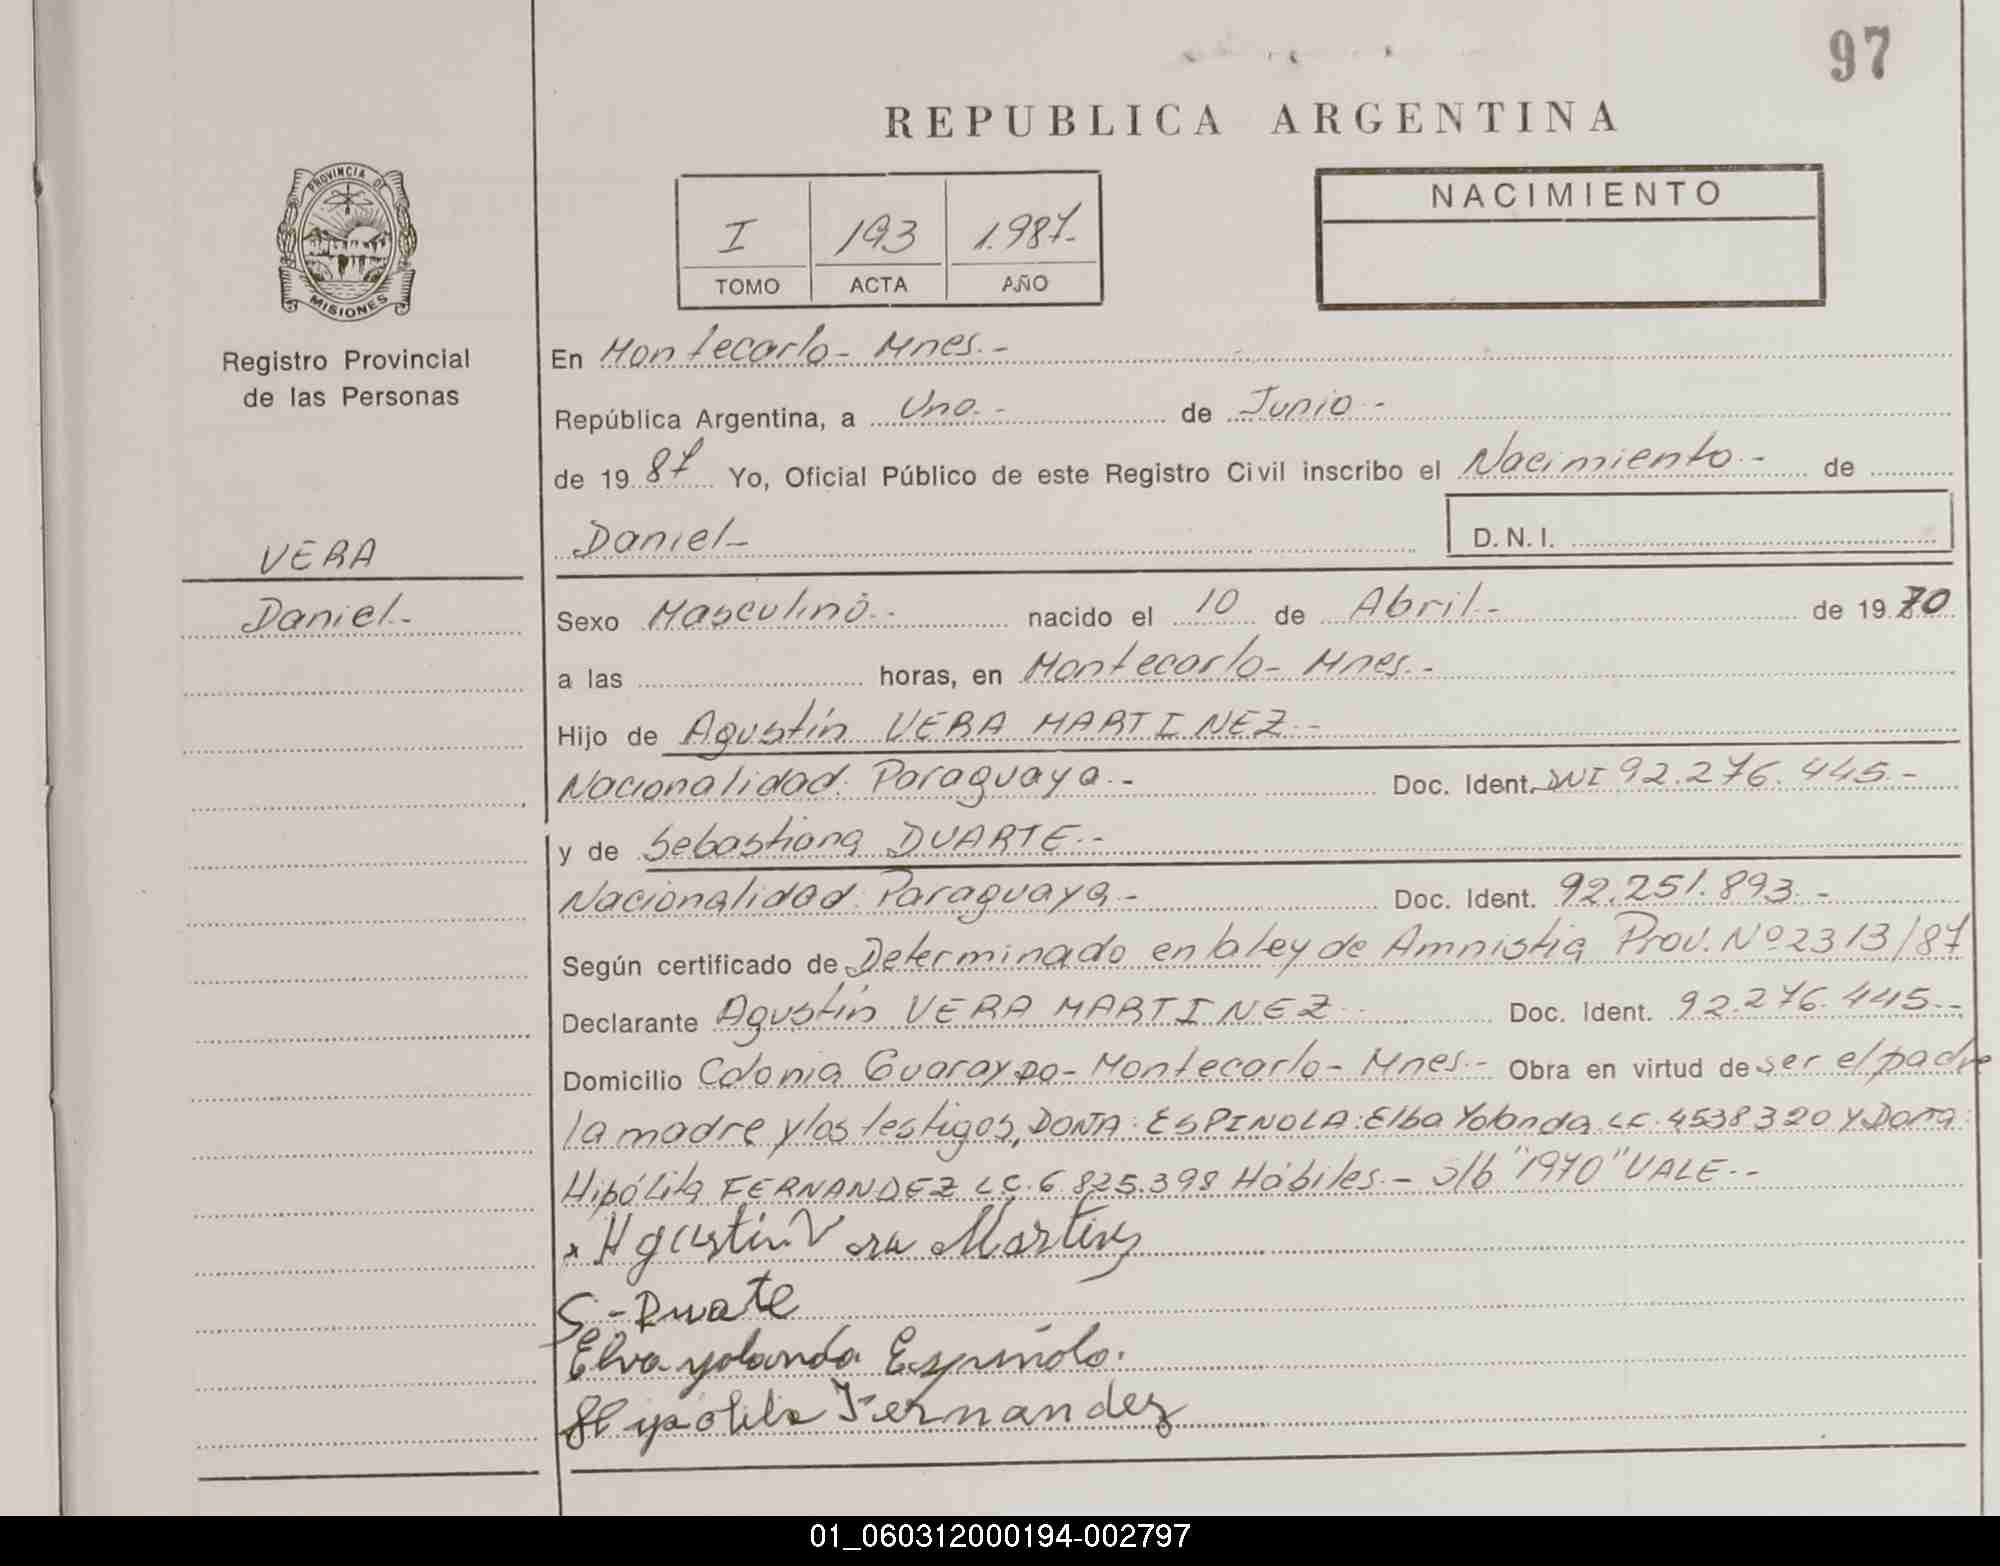 97
REPUBLICA ARGENTINA
PROVINCIA DE
MISIONES
Registro Provincial
de las Personas
I 193 1.987.-
TOMO ACTA AÑO
NACIMIENTO
En Montecarlo- Mnes.-
República Argentina, a Uno.- de Junio.-
de 19 87 Yo, Oficial Público de este Registro Civil inscribo el Nacimiento.- de
Daniel- D.N.I.
VERA
Daniel.-
Sexo Masculino.- nacido el 10 de Abril.- de 19 70
a las horas, en Montecarlo- Mnes.-
Hijo de Agustín VERA MARTINEZ.-
Nacionalidad: Paraguaya.- Doc. Ident. DNI 92.276.445.-
y de Sebastiana DUARTE.-
Nacionalidad: Paraguaya.- Doc. Ident. 92.251.893.-
Según certificado de Determinado en la ley de Amnistia Prov. Nº 2313/87
Declarante Agustín VERA MARTINEZ.- Doc. Ident. 92.276.445.-
Domicilio Colonia Guaraypo- Montecarlo- Mnes.- Obra en virtud de ser el padre
la madre y los testigos, DOÑA: ESPINOLA: Elba Yolanda LC. 4538320 y Doña:
Hipólita FERNANDEZ LC. 6.825.398 Hábiles.- s/b "1970" VALE.-
Agustin Vera Martinez
S-Duate
Elva yolanda Espinola.
Hypolita Fernandez
01_060312000194-002797